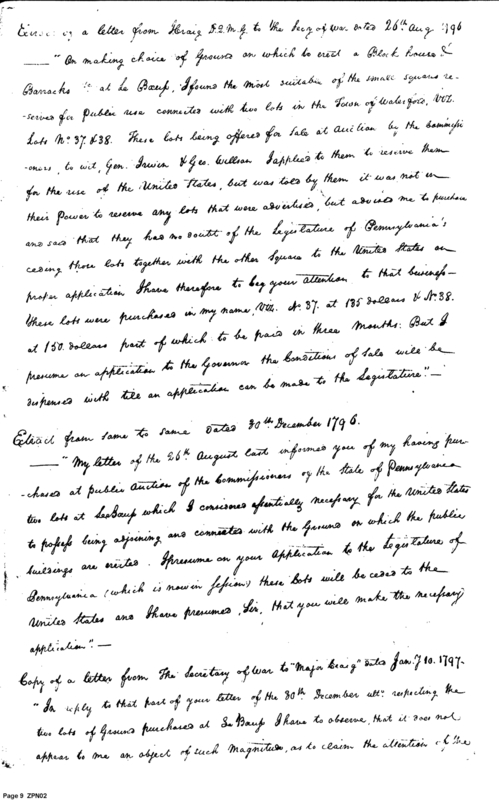 Extract of a letter from I Craig D.Q.M.G. to the Secy of War dated 26th Aug 1796
"On making choice of Ground on which to erect a Block house &
Barracks at Le Bœuf, I found the most suitable of the small squares re-
-served for Public use connected with two lots in the Town of Waterford, Viz.
Lots No. 37. & 38. These lots being offered for Sale at Auction by the Commissi
-oners, to wit, Gen. Irwin & Geo. Willson I applied to them to reserve them
for the use of the United States, but was told by them it was not in
their Power to reserve any lots that were advertised, but advised me to purchase
and said that they had no doubt of the Legislature of Pennsylvania's
ceding those lots together with the other Square to the United States on
proper application I have therefore to beg your attention to that business—
These lots were purchased in my name, Viz. No. 37. at 135 dollars & No. 38.
at 150. dollars part of which to be paid in three Months. But I
presume on application to the Governor the Conditions of Sale will be
dispensed with till an application can be made to the Legislature."—
Extract from same to same dated 30th December 1796.
"My letter of the 26th August last informed you of my having pur-
-chased at Public Auction of the Commissioners of the State of Pennsylvania
two lots at LeBœuf which I considered essentially necessary for the United States
to possess being adjoining and connected with the Ground on which the public
buildings are erected. I presume on your Application to the Legislature of
Pennsylvania (which is now in Session) these Lots will be ceded to the
United States and I have presumed, Sir, that you will make the necessary
application".—
Copy of a letter from The Secretary of War to "Major Craig" dated Jany 10. 1797.
"In reply to that part of your letter of the 30th December ulto. respecting the
two lots of Ground purchased at Le Bœuf I have to observe, that it does not
appear to me an object of such Magnitude, as to claim the attention of the
Page 9 ZPN02